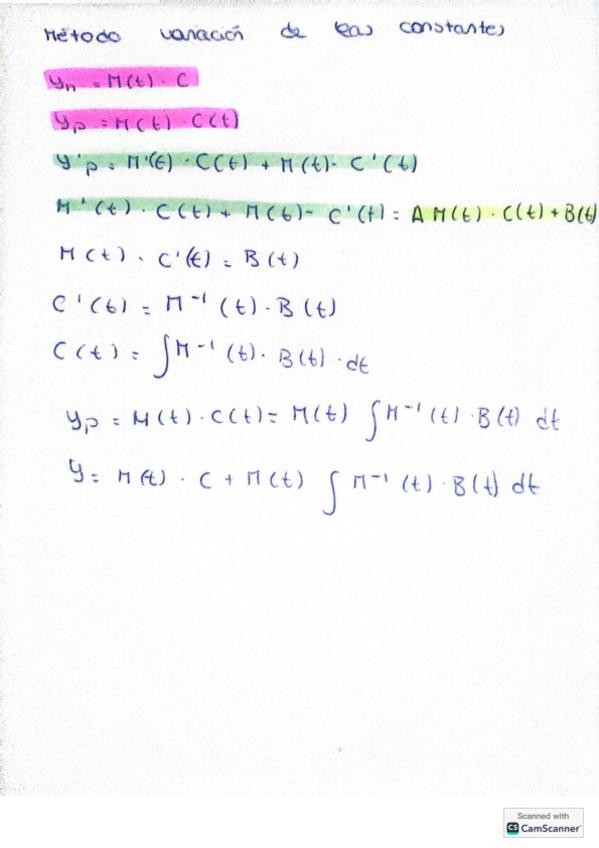 Método variación de las constantes
yn = M(t) · C
yp = M(t) · C(t)
y'p = M'(t) · C(t) + M(t) · C'(t)
M'(t) · C(t) + M(t) · C'(t) = A M(t) · C(t) + B(t)
M(t) · C'(t) = B(t)
C'(t) = M⁻¹(t) · B(t)
C(t) = ∫ M⁻¹(t) · B(t) · dt
yp = M(t) · C(t) = M(t) ∫ M⁻¹(t) · B(t) dt
y = M(t) · C + M(t) ∫ M⁻¹(t) · B(t) dt
Scanned with
CS CamScanner